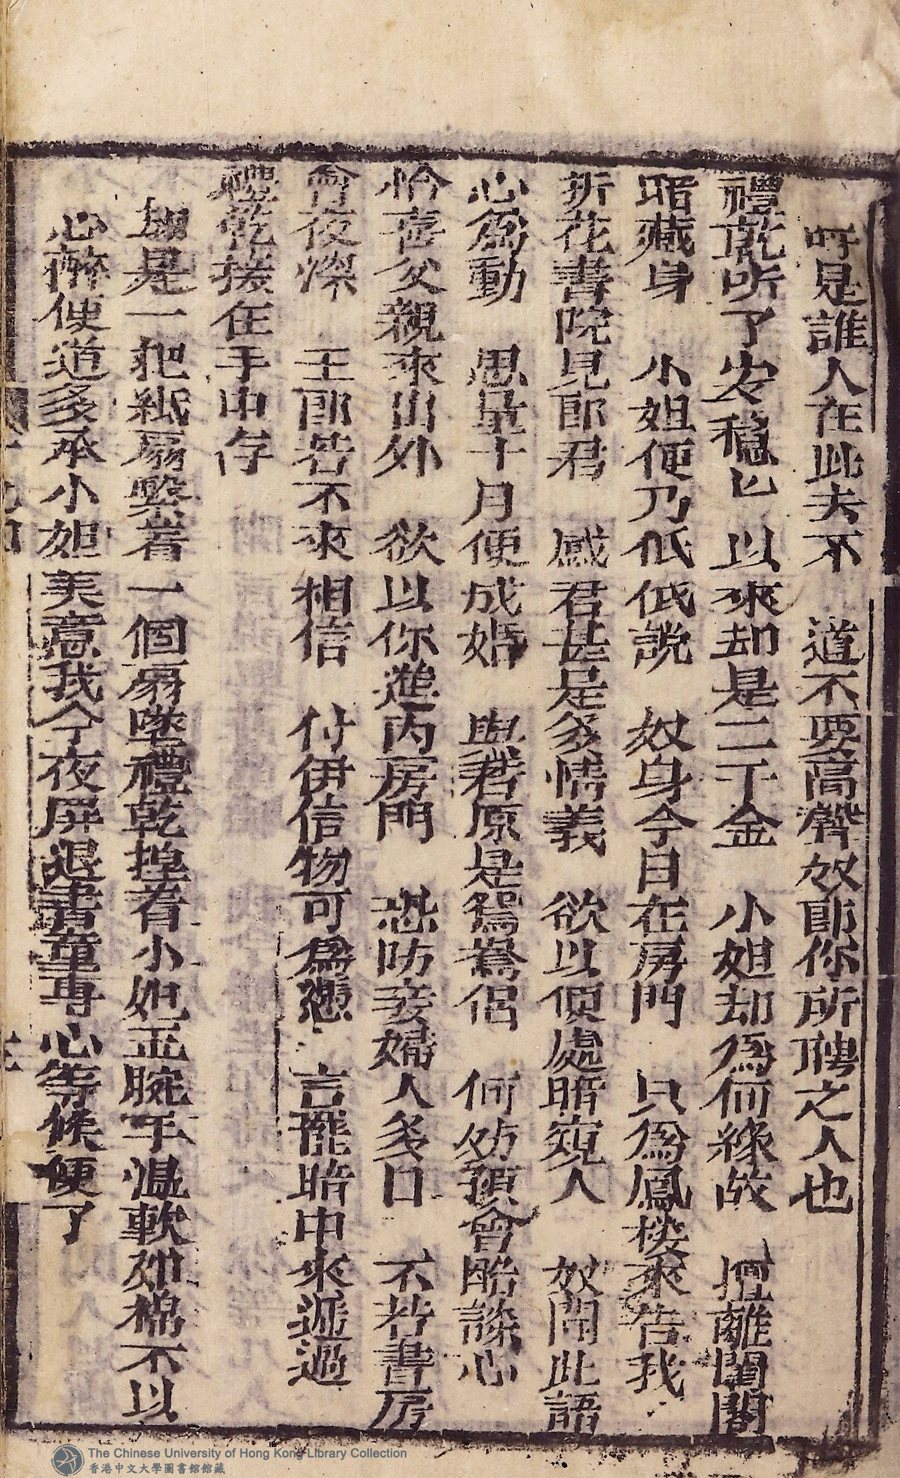 呼是誰人在此夫不 道不要高聲奴郎你所聘之人也
禮乾听了安穩匕 以來却是二千金 小姐却為何緣故 擅離閨閣
暗藏身 小姐便乃低低說 奴身今日在房門 只為鳳楼來告我
折花書院見郎君 感君甚是多情義 欲以便處暗窺人 奴聞此語
心為動 思量十月便成婚 與君原是鴛鴦侶 何妨預會酷談心
恰喜父親來出外 欲以你進內房門 恐防妾婦人多口 不若書房
會夜深 王郎若不來相信 付伊信物可為憑 言罷暗中來遞過
禮乾接在手中存
却是一把紙扇繫着一個扇墜禮乾揑着小姐玉腕手温軟如棉不以
心醉便道多承小姐美意我今夜屏退書童専心等候便了
The Chinese University of Hong Kong Library Collection
香港中文大學圖書館館藏